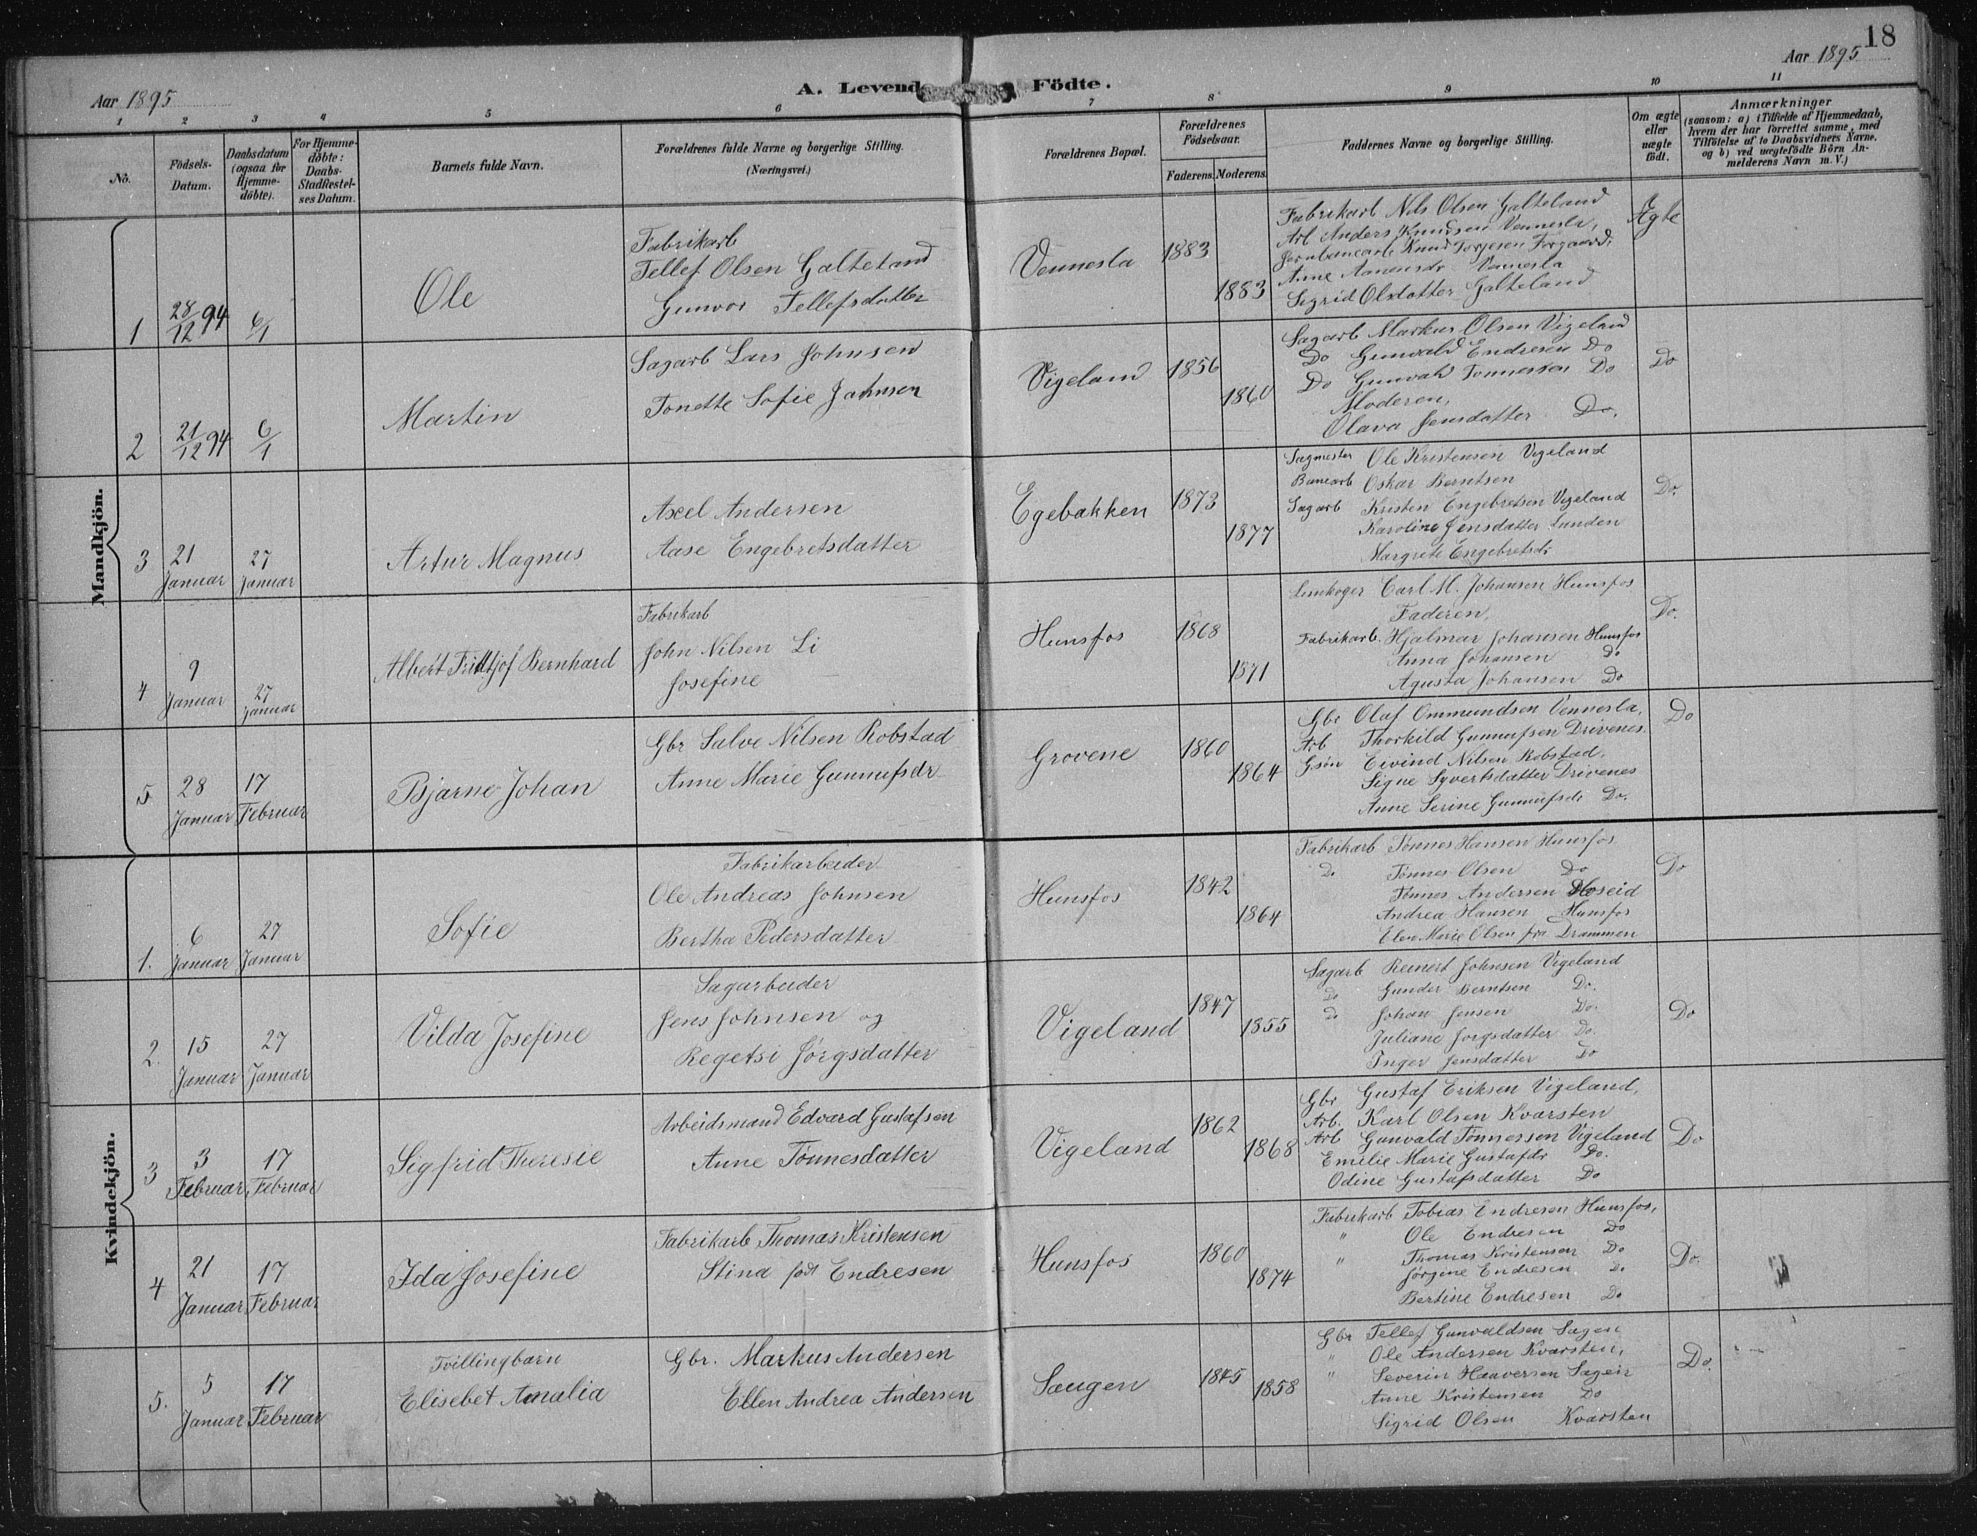 18
Aar 1895
A. Levende Födte.
Aar 1895
1 2 3 4 5 6 7 8 9 10 11
No.
Födsels-Datum.
Daabsdatum (ogsaa for Hjemmedöbte).
For Hjemmedöbte: Daabs-Stadfæstelses Datum.
Barnets fulde Navn.
Forældrenes fulde Navne og borgerlige Stilling.
(Næringsvei.)
Forældrenes Bopæl.
Forældrenes Födselsaar.
Faderens. Moderens.
Faddernes Navne og borgerlige Stilling.
Om ægte eller uægte födt.
Anmærkninger
(saasom: a) i Tilfælde af Hjemmedaab,
hvem der har forrettet samme, med
Tilföielse af to Daabsvidners Navne,
og b) ved uægtefödte Börn An-
melderens Navn m. V.)
Mandkjön.
1 28/12 94 6/1
Ole
Fabrikarb
Tellef Olsen Galteland
Gunvor Tellefsdatter
Vennesla 1883 1883
Fabrikarb Nils Olsen Galteland
Arb Anders Knudsen Vennesla,
Jernbanearb Knud Torjesen
Anne Aanensdr Vennesla
Sigrid Olsdatter Galteland
Ægte
2 21/12 94 6/1
Martin
Sagarb Lars Johnsen
Tonette Sofie Johnsen
Vigeland 1856 1860
Sagarb Markus Olsen Vigeland
Do Gunvald Endresen Do
Do Gunvald Tønnessen Do
Moderen,
Olava Jensdatter Do.
Do
3 21 Januar 27 Januar
Artur Magnus
Axel Andersen
Aase Engebretsdatter
Egebakken 1873 1877
Sagmester Ole Kristensen Vigeland
Banearb Oskar Berntsen
Sagarb Kristen Engebretsen Vigeland
Karoline Jensdatter Lunden
Margrete Engebretsdr
Do.
4 9 Januar 27 Januar
Albert Fridtjof Bernhard
Fabrikarb
John Nilsen Li
Josefine
Hunsfos 1868 1871
Limkoger Carl M. Johansen Hunsfos
Faderen,
Fabrikarb. Hjalmar Johansen Hunsfos
Anna Johansen Do
Agusta Johansen Do
Do.
5 28 Januar 17 Februar
Bjarne Johan
Gbr Salve Nilsen Robstad
Anne Marie Gunnufsdr
Grovene 1860 1864
Gbr Olaf Ommundsen Vennesla,
Arb Thorkild Gunnufsen Drivenes.
Gsøn Eivind Nilsen Robstad,
Signe Syvertsdatter Drivenes
Anne Serine Gunnufsdr Do.
Do
Kvindekjön.
1. 6 Januar 27 Januar
Sofie
Fabrikarbeider
Ole Andreas Johnsen
Bertha Pedersdatter
Hunsfos 1842 1864
Fabrikarb Tønnes Hansen Hunsfos
Do Tønnes Olsen Do
Tønnes Andersen
Andrea Hansen Hunsfos
Elen Marie Olsen fra Drammen
Do
2. 15 Januar 27 Januar
Vilda Josefine
Sagarbeider
Jens Johnsen og
Regetsi Jørgsdatter
Vigeland 1847 1855
Sagarb Reinert Johnsen Vigeland
Do Gunder Berntsen Do.
Do Johan Jensen Do.
Juliane Jorgsdatter Do
Inger Jensdatter Do
Do
3 3 Februar 17 Februar
Sigfrid Theresie
Arbeidsmand Edvard Gustafsen
Anne Tönnesdatter
Vigeland 1862 1868
Gbr Gustaf Eriksen Vigeland,
Arb. Karl Olsen Kvarsten
Arb Gunvald Tönnessen Vigeland
Emilie Marie Gustafdr Do.
Odine Gustafsdatter Do
Do
4 21 Januar 17 Februar
Ida Josefine
Fabrikarb Thomas Kristensen
Stina födt Endresen
Hunsfos 1860 1874
Fabrikarb Tobias Endresen Hunsfos,
" Ole Endresen Do
" Thomas Kristensen Do
Jørgine Endresen Do
Bertine Endresen Do
Do.
5. 5 Januar 17 Februar
Tvillingbarn
Elisebet Amalia
Gbr. Markus Andersen
Ellen Andrea Andersen
Saugen 1845 1858
Gbr Tellef Gunvaldsen Sagen
" Ole Andersen Kvarsten,
" Severin Haaversen Sagen
Anne Kristensen Do
Sigrid Olsen Kvarsten
Do.